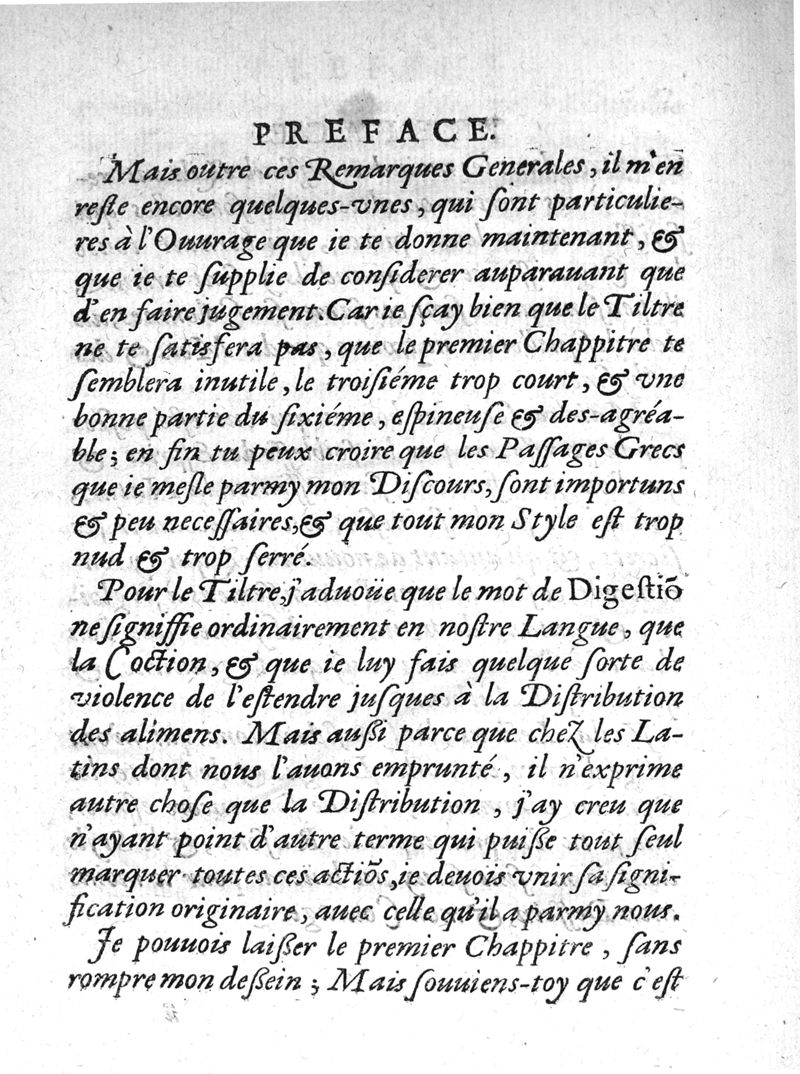 PREFACE.
Mais outre ces Remarques Generales, il m'en
reſte encore quelques-vnes, qui ſont particulie-
res à l'Ouurage que ie te donne maintenant, &
que ie te ſupplie de conſiderer auparauant que
d'en faire jugement. Car ie ſçay bien que le Tiltre
ne te ſatisfera pas, que le premier Chappitre te
ſemblera inutile, le troiſiéme trop court, & vne
bonne partie du ſixiéme, eſpineuſe & des-agréa-
ble; en fin tu peux croire que les Paſſages Grecs
que ie meſle parmy mon Diſcours, ſont importuns
& peu neceſſaires, & que tout mon Style eſt trop
nud & trop ſerré.
Pour le Tiltre, j'aduoüe que le mot de Digeſtiõ
ne ſigniffie ordinairement en noſtre Langue, que
la Coction, & que ie luy fais quelque ſorte de
violence de l'eſtendre juſques à la Diſtribution
des alimens. Mais auſſi parce que chez les La-
tins dont nous l'auons emprunté, il n'exprime
autre choſe que la Diſtribution, j'ay creu que
n'ayant point d'autre terme qui puiſſe tout ſeul
marquer toutes ces actiõs, ie deuois vnir ſa ſigni-
fication originaire, auec celle qu'il a parmy nous.
Je pouuois laiſſer le premier Chappitre, ſans
rompre mon deſſein; Mais ſouuiens-toy que c'eſt